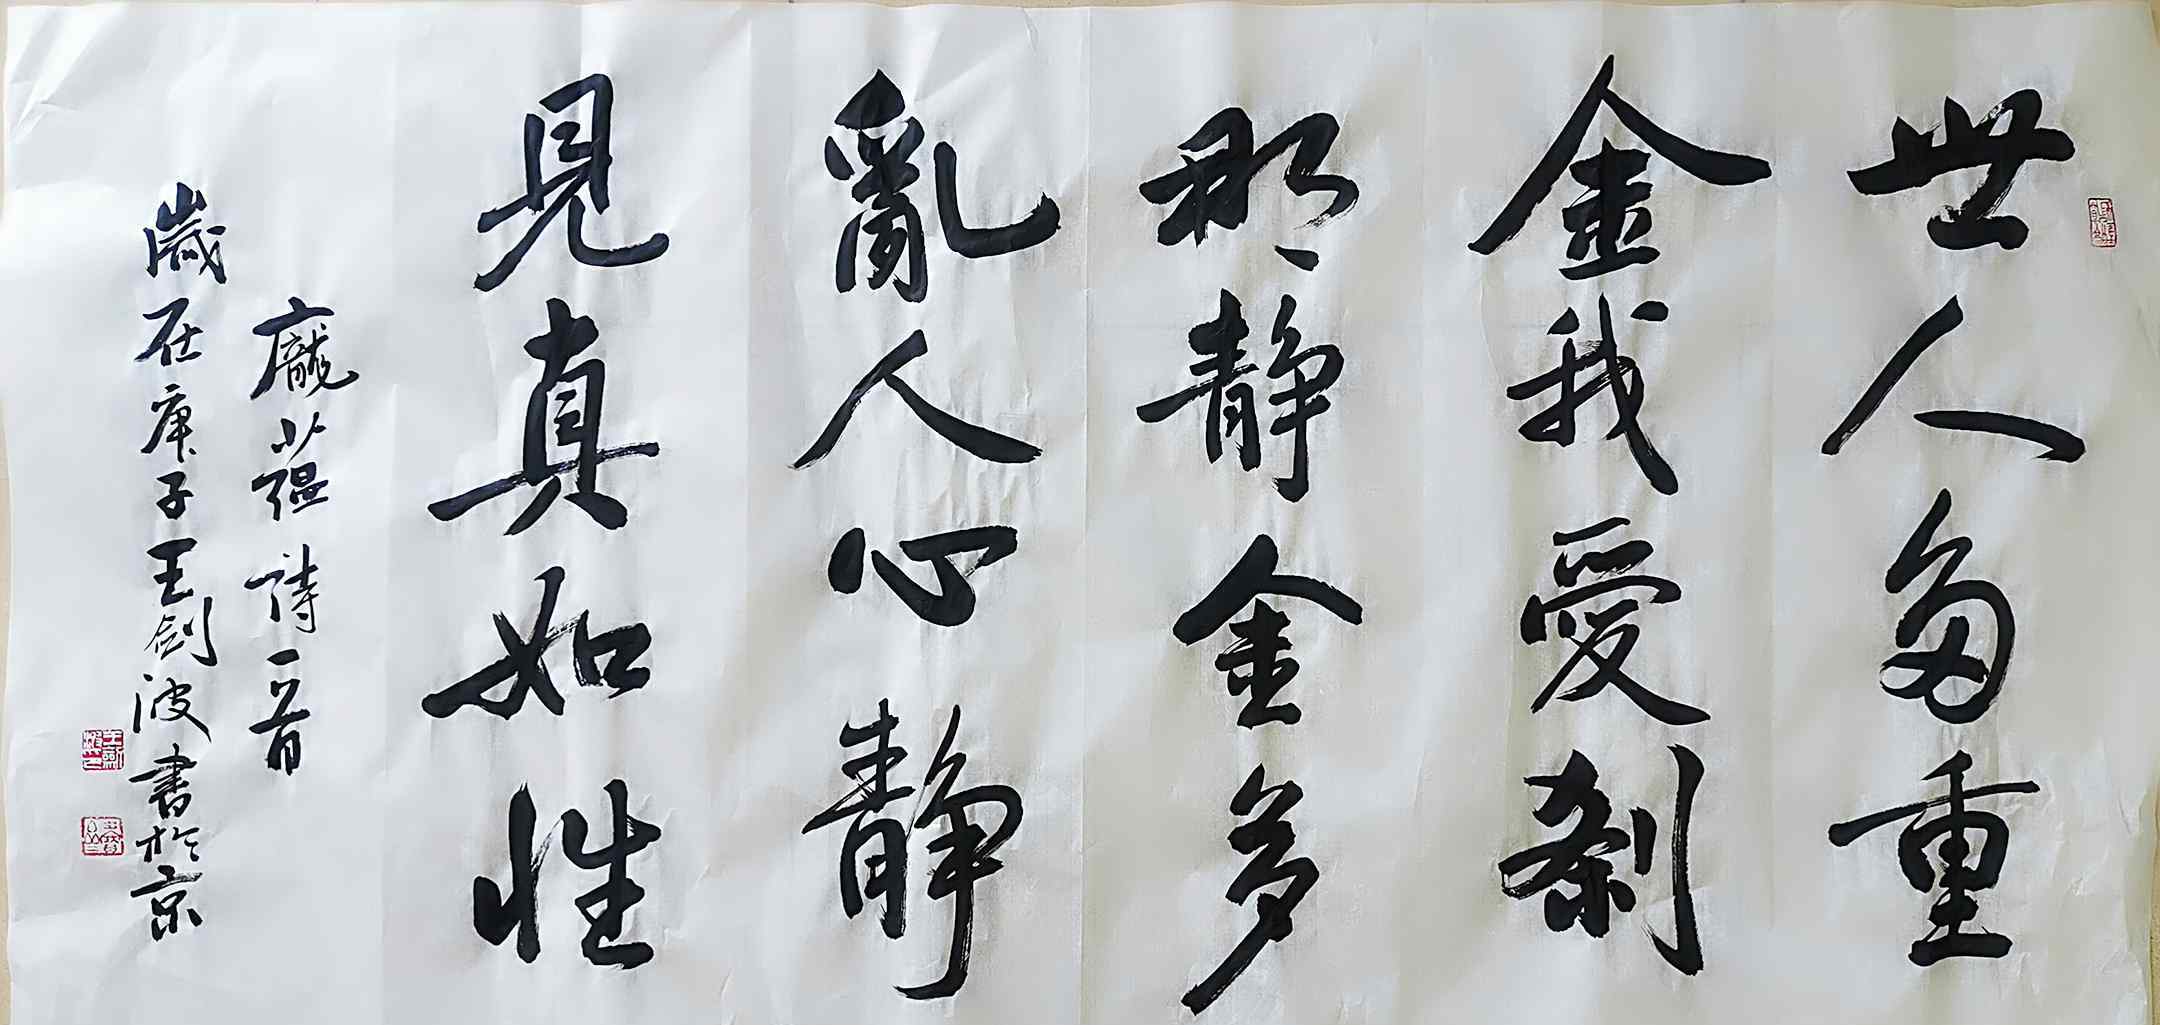 世人多重
金我愛剎
那靜金多
亂人心靜
見真如性
龐蘊詩一首
歲在庚子王劍波書於京